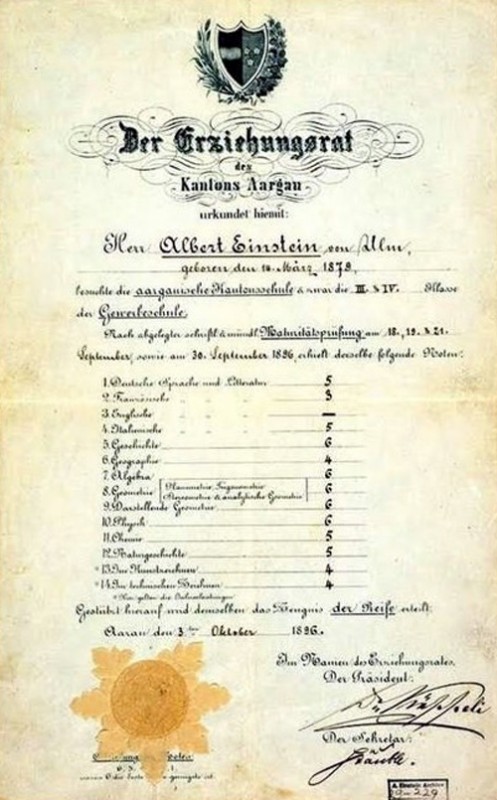 Der Erziehungsrat
des
Kantons Aargau
urkundet hiemit:
Herr Albert Einstein von Ulm,
geboren den 14. März 1879,
besuchte die aargauische Kantonsschule & zwar die III. & IV. Klasse
der Gewerbeschule.
Nach abgelegter schriftl. & mündl. Maturitätsprüfung am 18., 19. & 21.
September, sowie am 30. September 1896, erhielt derselbe folgende Noten:
1. Deutsche Sprache und Litteratur 5
2. Französische " " " 3
3. Englische " " " —
4. Italienische " " " 5
5. Geschichte 6
6. Geographie 4
7. Algebra 6
8. Geometrie Planimetrie, Trigonometrie 6
Stereometrie & analytische Geometrie
9. Darstellende Geometrie 6
10. Physik 6
11. Chemie 5
12. Naturgeschichte 5
* 13. Im Kunstzeichnen 4
* 14. Im technischen Zeichnen 4
* Hier gelten die Jahresleistungen
Gestützt hierauf wird demselben das Zeugnis der Reife erteilt.
Aarau den 3. ten Oktober 1896.
Im Namen des Erziehungsrates,
Der Präsident:
Der Sekretär:
6
A. Einstein Archive
29-229